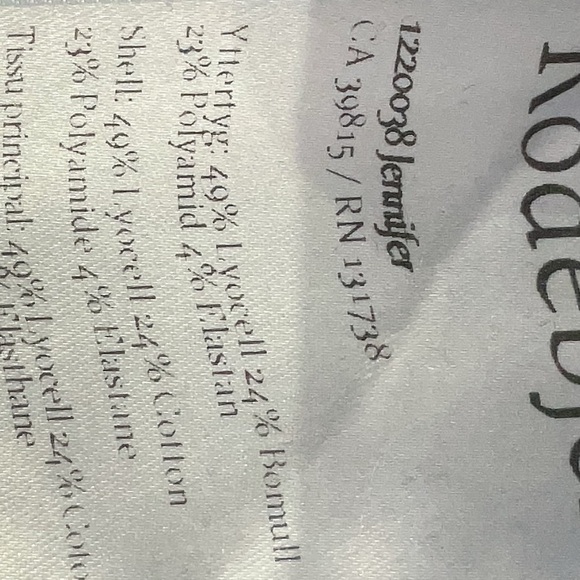 Rodebj
1220038 Jennifer
CA 39815 / RN 131738
Yttertyg: 49% Lyocell 24% Bomull
23% Polyamid 4% Elastan
Shell: 49% Lyocell 24% Cotton
23% Polyamide 4% Elastane
Tissu principal: 49% Lyocell 24% Coto
Elasthane